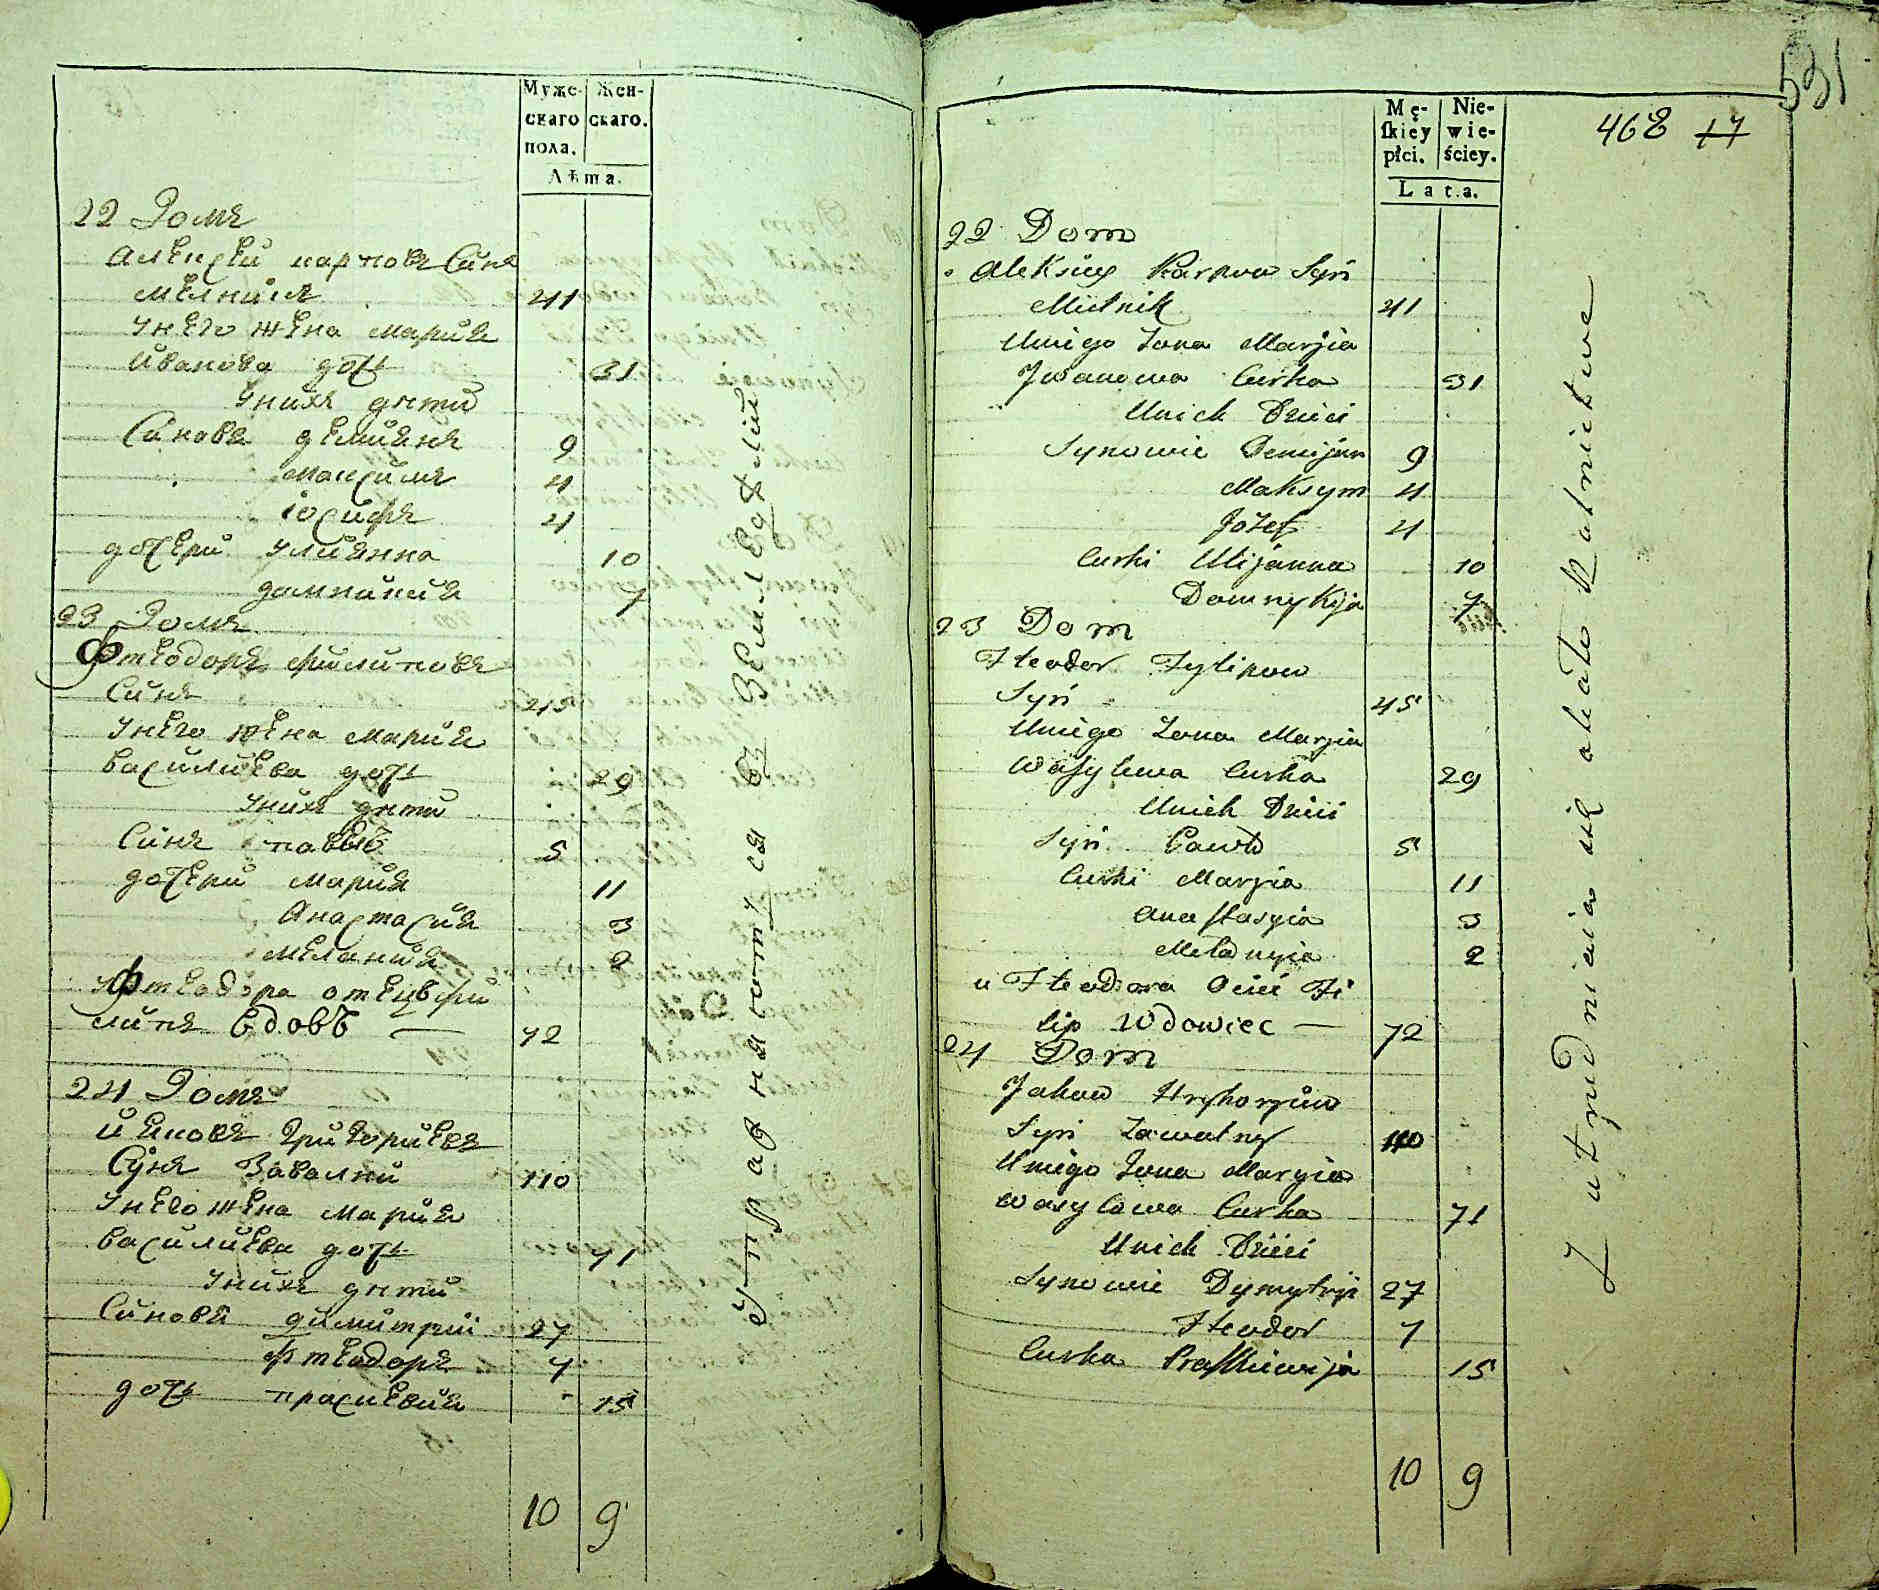 Муже-
скаго
пола.
Жен-
скаго.
Лѣта.
22 Домъ
Алексѣй карповъ Синъ
мелникъ 41
Унего жена мария
Иванова дочь 31
Унихъ дѣти
Синовъ демиянъ 9
максимъ 4
іосифъ 4
дочери улиянна 10
домникия 7
23 Домъ
Фтеодоръ филиповъ
Синъ 45
Унего жена мария
василиева дочь 29
Унихъ дѣти
Синъ павелъ 5
дочери мария 11
Анастасия 3
мелания 2
уфтеодора отецъ фи
липъ вдовъ — 72
24 Домъ
Ияковъ Григориевъ
Синъ Завалний 110
Унего жена мария
василиева дочь 71
Унихъ дѣти
Синови димитрий 27
фтеодоръ 7
дочь прасковия 15
10 9
Упражняются в земледѣлии
531
468 17
Mę-
skiey
płci.
Nie-
wie-
ściey.
Lata.
22 Dom
Aleksiey Karpow Syn
Mielnik 41
Uniego Zona Maryia
Jwanowa Curka 31
Unich Dzieci
Synowie Demijan 9
Maksym 4
Jozef 4
Curki Ulijanna 10
Domnykija 7
23 Dom
Fteodor Fylipow
Syn 45
Uniego Zona Maryia
Wasylewa Curka 29
Unich Dzieci
Syn Pawło 5
Curki Maryia 11
Anastasyia 3
Mełanyia 2
u Fteodora Ociec Fi
lip Wdowiec — 72
24 Dom
Jakow Hryhoryiew
Syn Zawalny 110
Uniego Zona Maryia
Wasylowa Curka 71
Unich Dzieci
Synowie Dymytryi 27
Fteodor 7
Curka Praskiewija 15
10 9
Zatrudniaia sie okało Ratnictwe